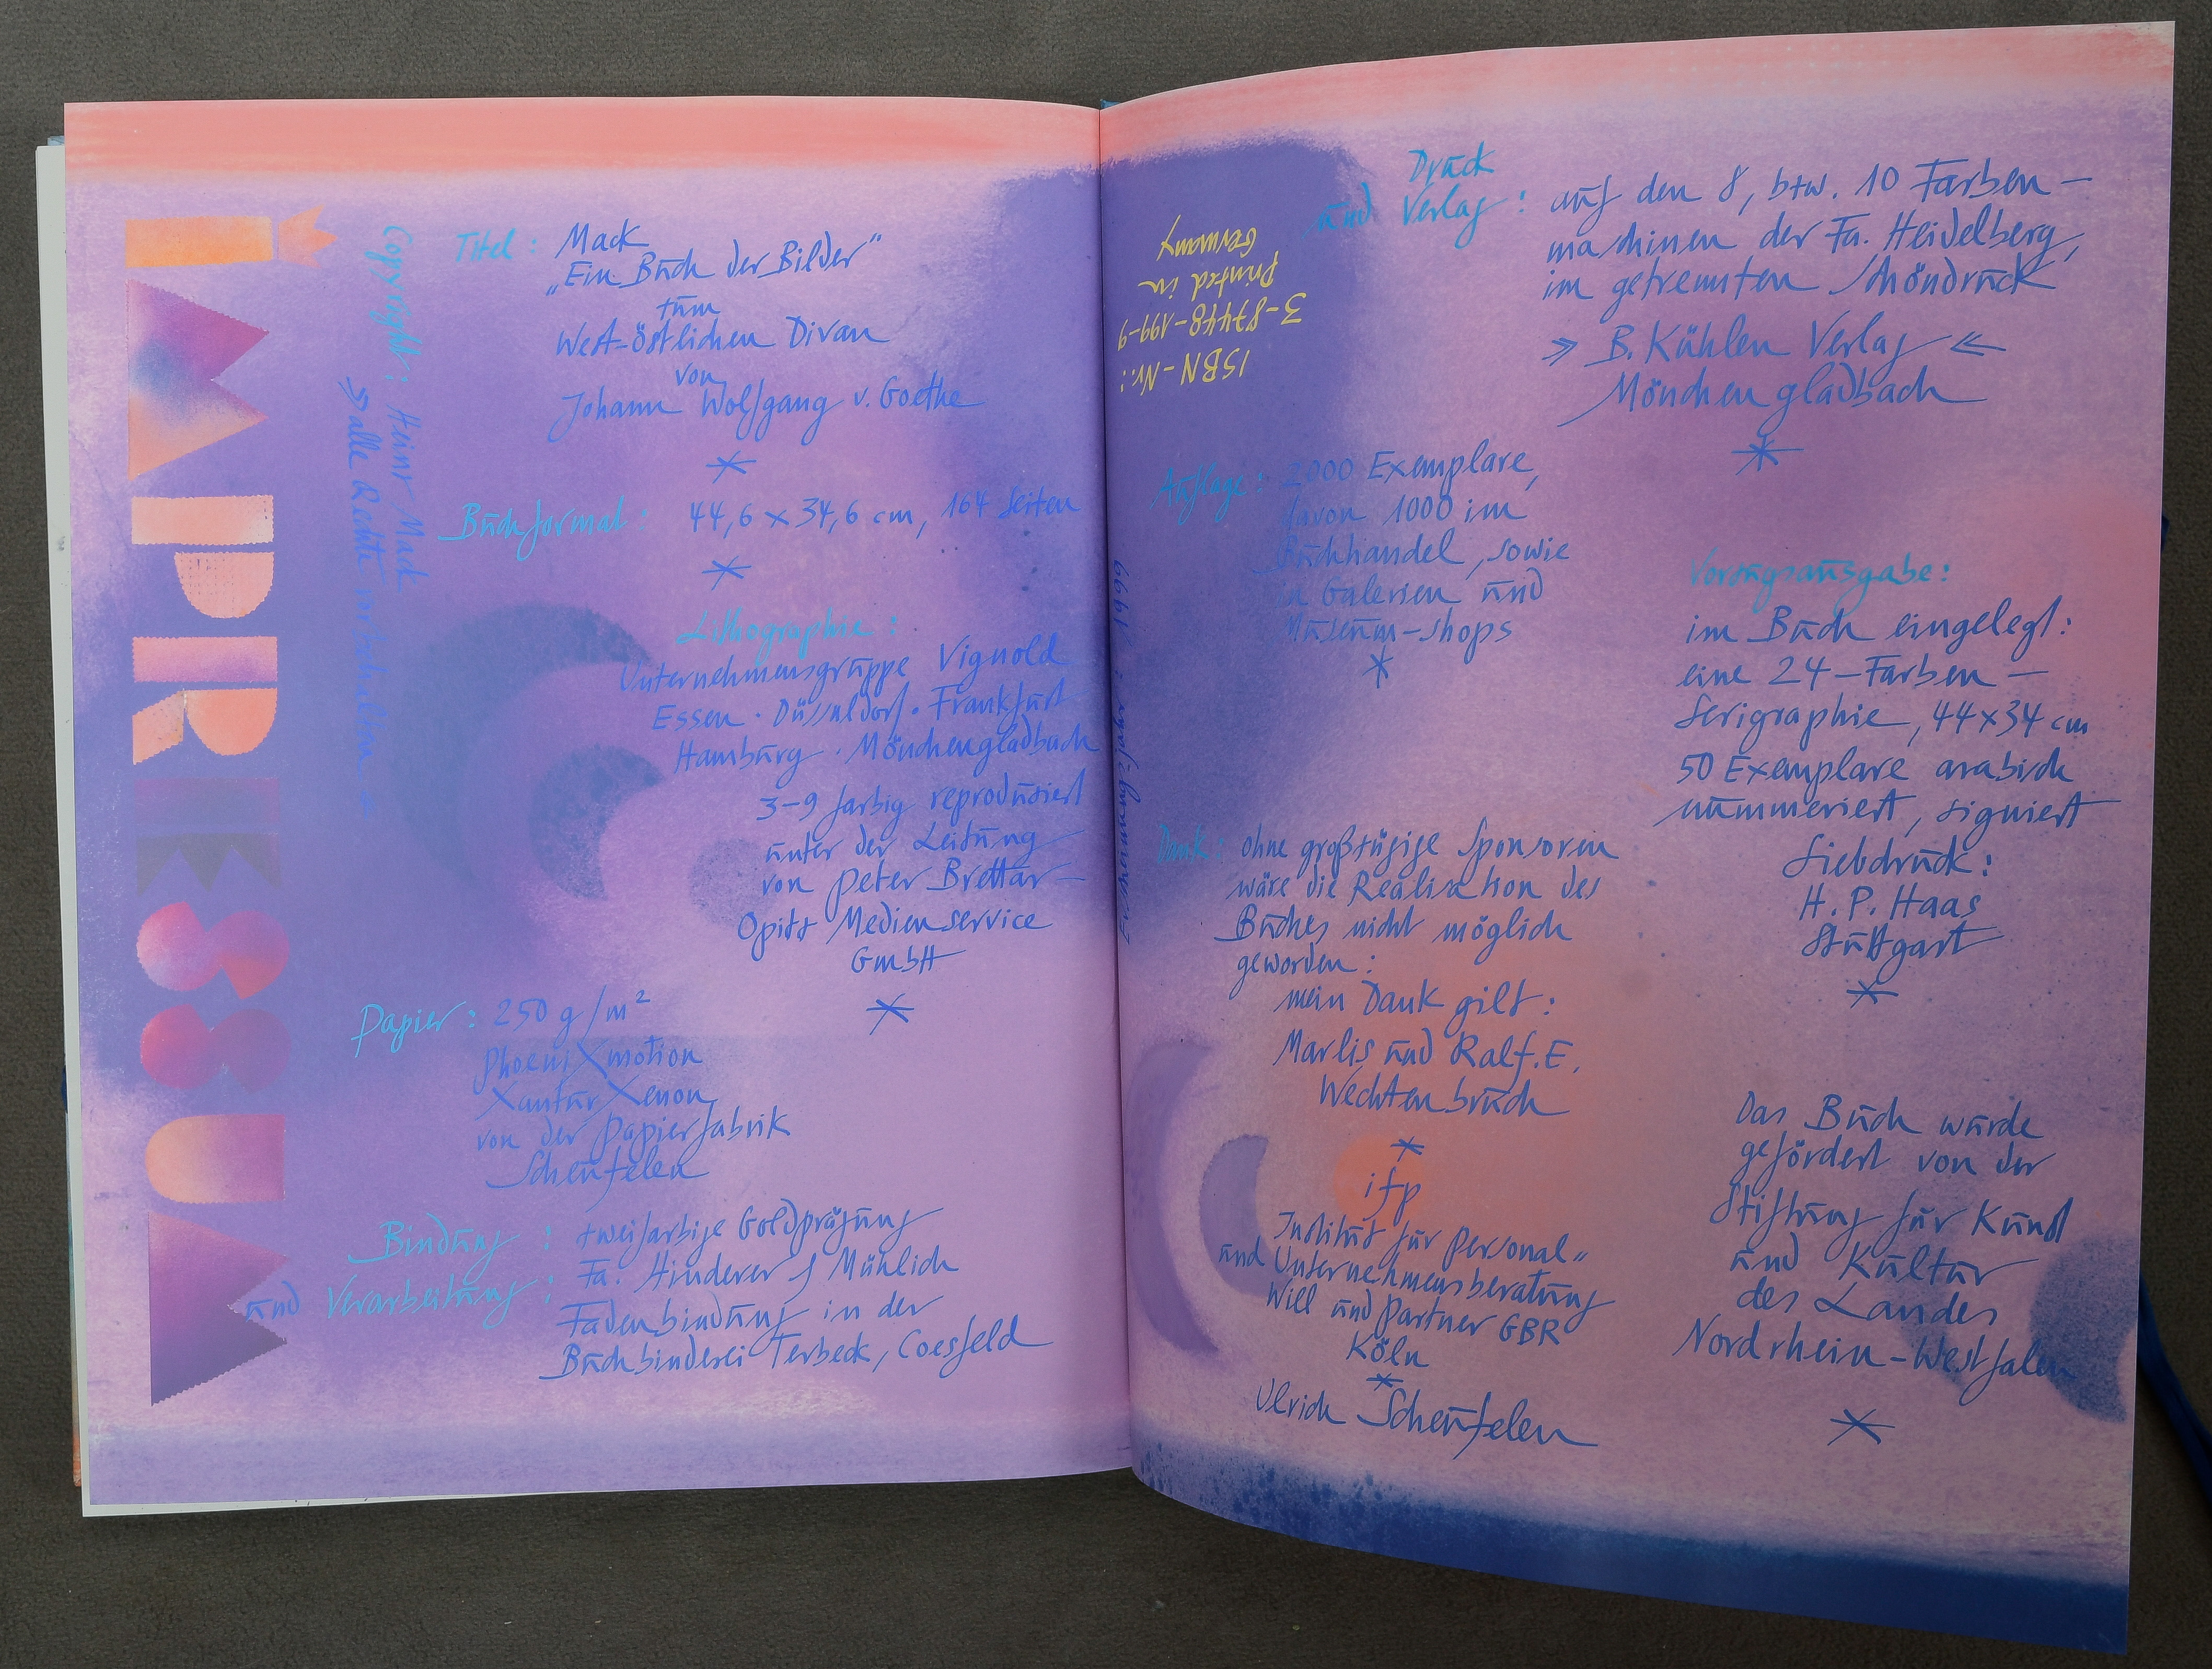 IMPRESSUM
Copyright: Heinz Mack
» alle Rechte vorbehalten «
Titel: Mack
„Ein Buch der Bilder"
zum
West-östlichen Divan
von
Johann Wolfgang v. Goethe
Buchformat: 44,6 x 34,6 cm, 164 Seiten
Lithographie:
Unternehmensgruppe Vignold
Essen · Düsseldorf · Frankfurt
Hamburg · Mönchengladbach
3-9 farbig reproduziert
unter der Leitung
von Peter Brettar-
Opitz Medienservice
GmbH
Papier: 250 g/m²
PhoeniXmotion
XanturXenon
von der Papierfabrik
Scheufelen
Bindung: zweifarbige Goldprägung
Fa. Hinderer & Mühlich
und Verarbeitung: Fadenbindung in der
Buchbinderei Terbeck, Coesfeld
ISBN-Nr.:
3-87448-199-9
Printed in
Germany
Erscheinungsjahr: 1999
Druck
und Verlag: auf den 8, bzw. 10 Farben-
maschinen der Fa. Heidelberg,
im getrennten Schöndruck
» B. Kühlen Verlag «
Mönchengladbach
Auflage: 2000 Exemplare,
davon 1000 im
Buchhandel, sowie
in Galerien und
Museum-shops
Vorzugsausgabe:
im Buch eingelegt:
eine 24-Farben-
Serigraphie, 44x34 cm
50 Exemplare arabisch
nummeriert, signiert
Siebdruck:
H. P. Haas
Stuttgart
Dank: ohne großzügige Sponsoren
wäre die Realisation des
Buches nicht möglich
geworden:
mein Dank gilt:
Marlis und Ralf. E.
Wechtenbruch
ifp
Institut für Personal=
und Unternehmensberatung
Will und Partner GBR
Köln
Ulrich Scheufelen
Das Buch wurde
gefördert von der
Stiftung für Kunst
und Kultur
des Landes
Nordrhein-Westfalen